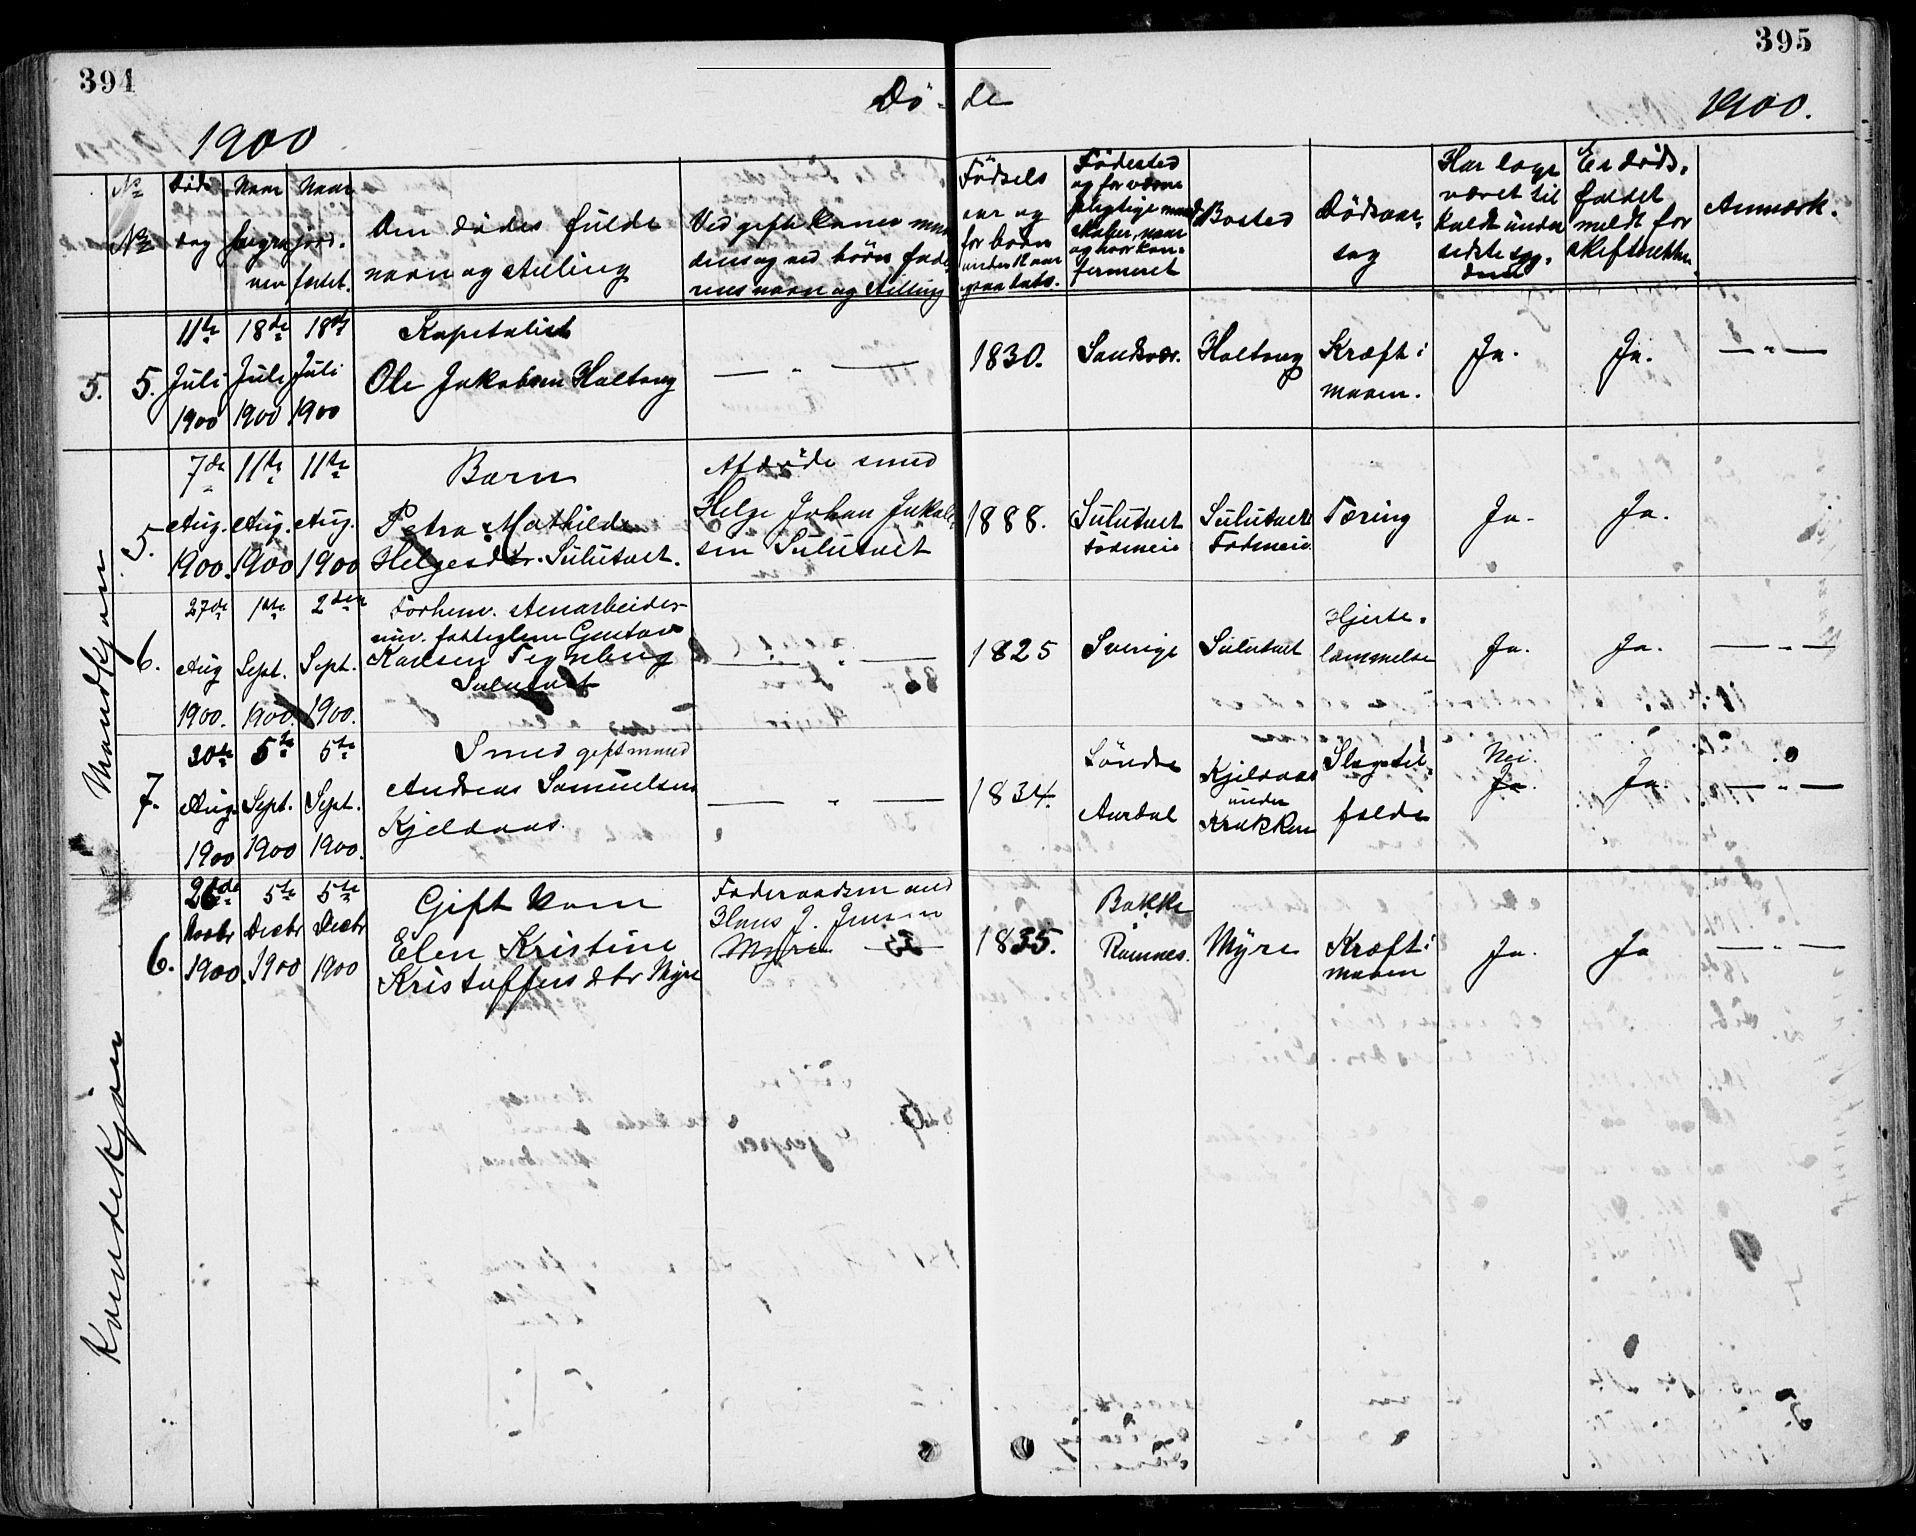 394
395
Dö-de
1900
1900.
No
No
Döds
dag
Naar
begra
ven
Naar
jord-
festet.
Den dödes fulde
navn og stilling
Ved gifte koner man
dens og ved börn fade
rens navn og stilling
Födsels
aar og
for börn
under 12 aar
ogsaa dato.
Födested
og for værne
pligtige mand
skaber, naar
og hvor kon-
firmeret
Bosted
Dödsaar-
sag
Har læge
været til
kaldt under
sidste syg-
dom
Er döds-
faldet
meldt for
skifteretten
Anmærk.
Mandkjøn
Kvindekjøn
5.
5.
11te
Juli
1900
18de
Juli
1900
18de
Juli
1900
Kapitalist
Ole Jakobsen Holtoug
— " —
1830.
Sandsvær.
Holtoug
Kræft i
maven.
Ja.
Ja.
— " —
5.
7de
Aug.
1900.
11te
Aug.
1900
11te
Aug.
1900
Barn
Petra Mathilde
Helgesdtr. Sulutvet.
Afdöde smed
Helge Johan Jakob-
sen Sulutvet
1888.
Sulutvet
Fodmeie
Sulutvet
Fodmeie
Tæring
Ja.
Ja.
6.
27de
Aug
1900.
1ste
Sept.
1900.
2den
Sept.
1900.
Forhenv. stenarbeider
nuv. fattiglem Gustav
Karlsen Tegneberg
Sulutvet
— " —
1825
Sverige
Sulutvet
Hjerte-
lammelse
Ja.
Ja.
— " —
7.
30te
Aug.
1900
5te
Sept.
1900
5te
Sept.
1900.
Smed gift mand
Andreas Samuelsen
Kjeldaas.
— " —
1834.
Söndre
Aurdal
Kjeldaas
under
Krakken
Slagtil-
fælde
Nei.
Ja.
Ja.
— " —
6.
26de
Novbr
1900.
5te
Decbr
1900
5te
Decbr
1900
Gift kone
Elen Kristine
Kristoffersdtr Myre
Föderaadsmand
Hans J. Jensen
Myre
1835.
Bakke
Ramnes.
Myre
Kræft i
maven
Ja.
Ja
— " —